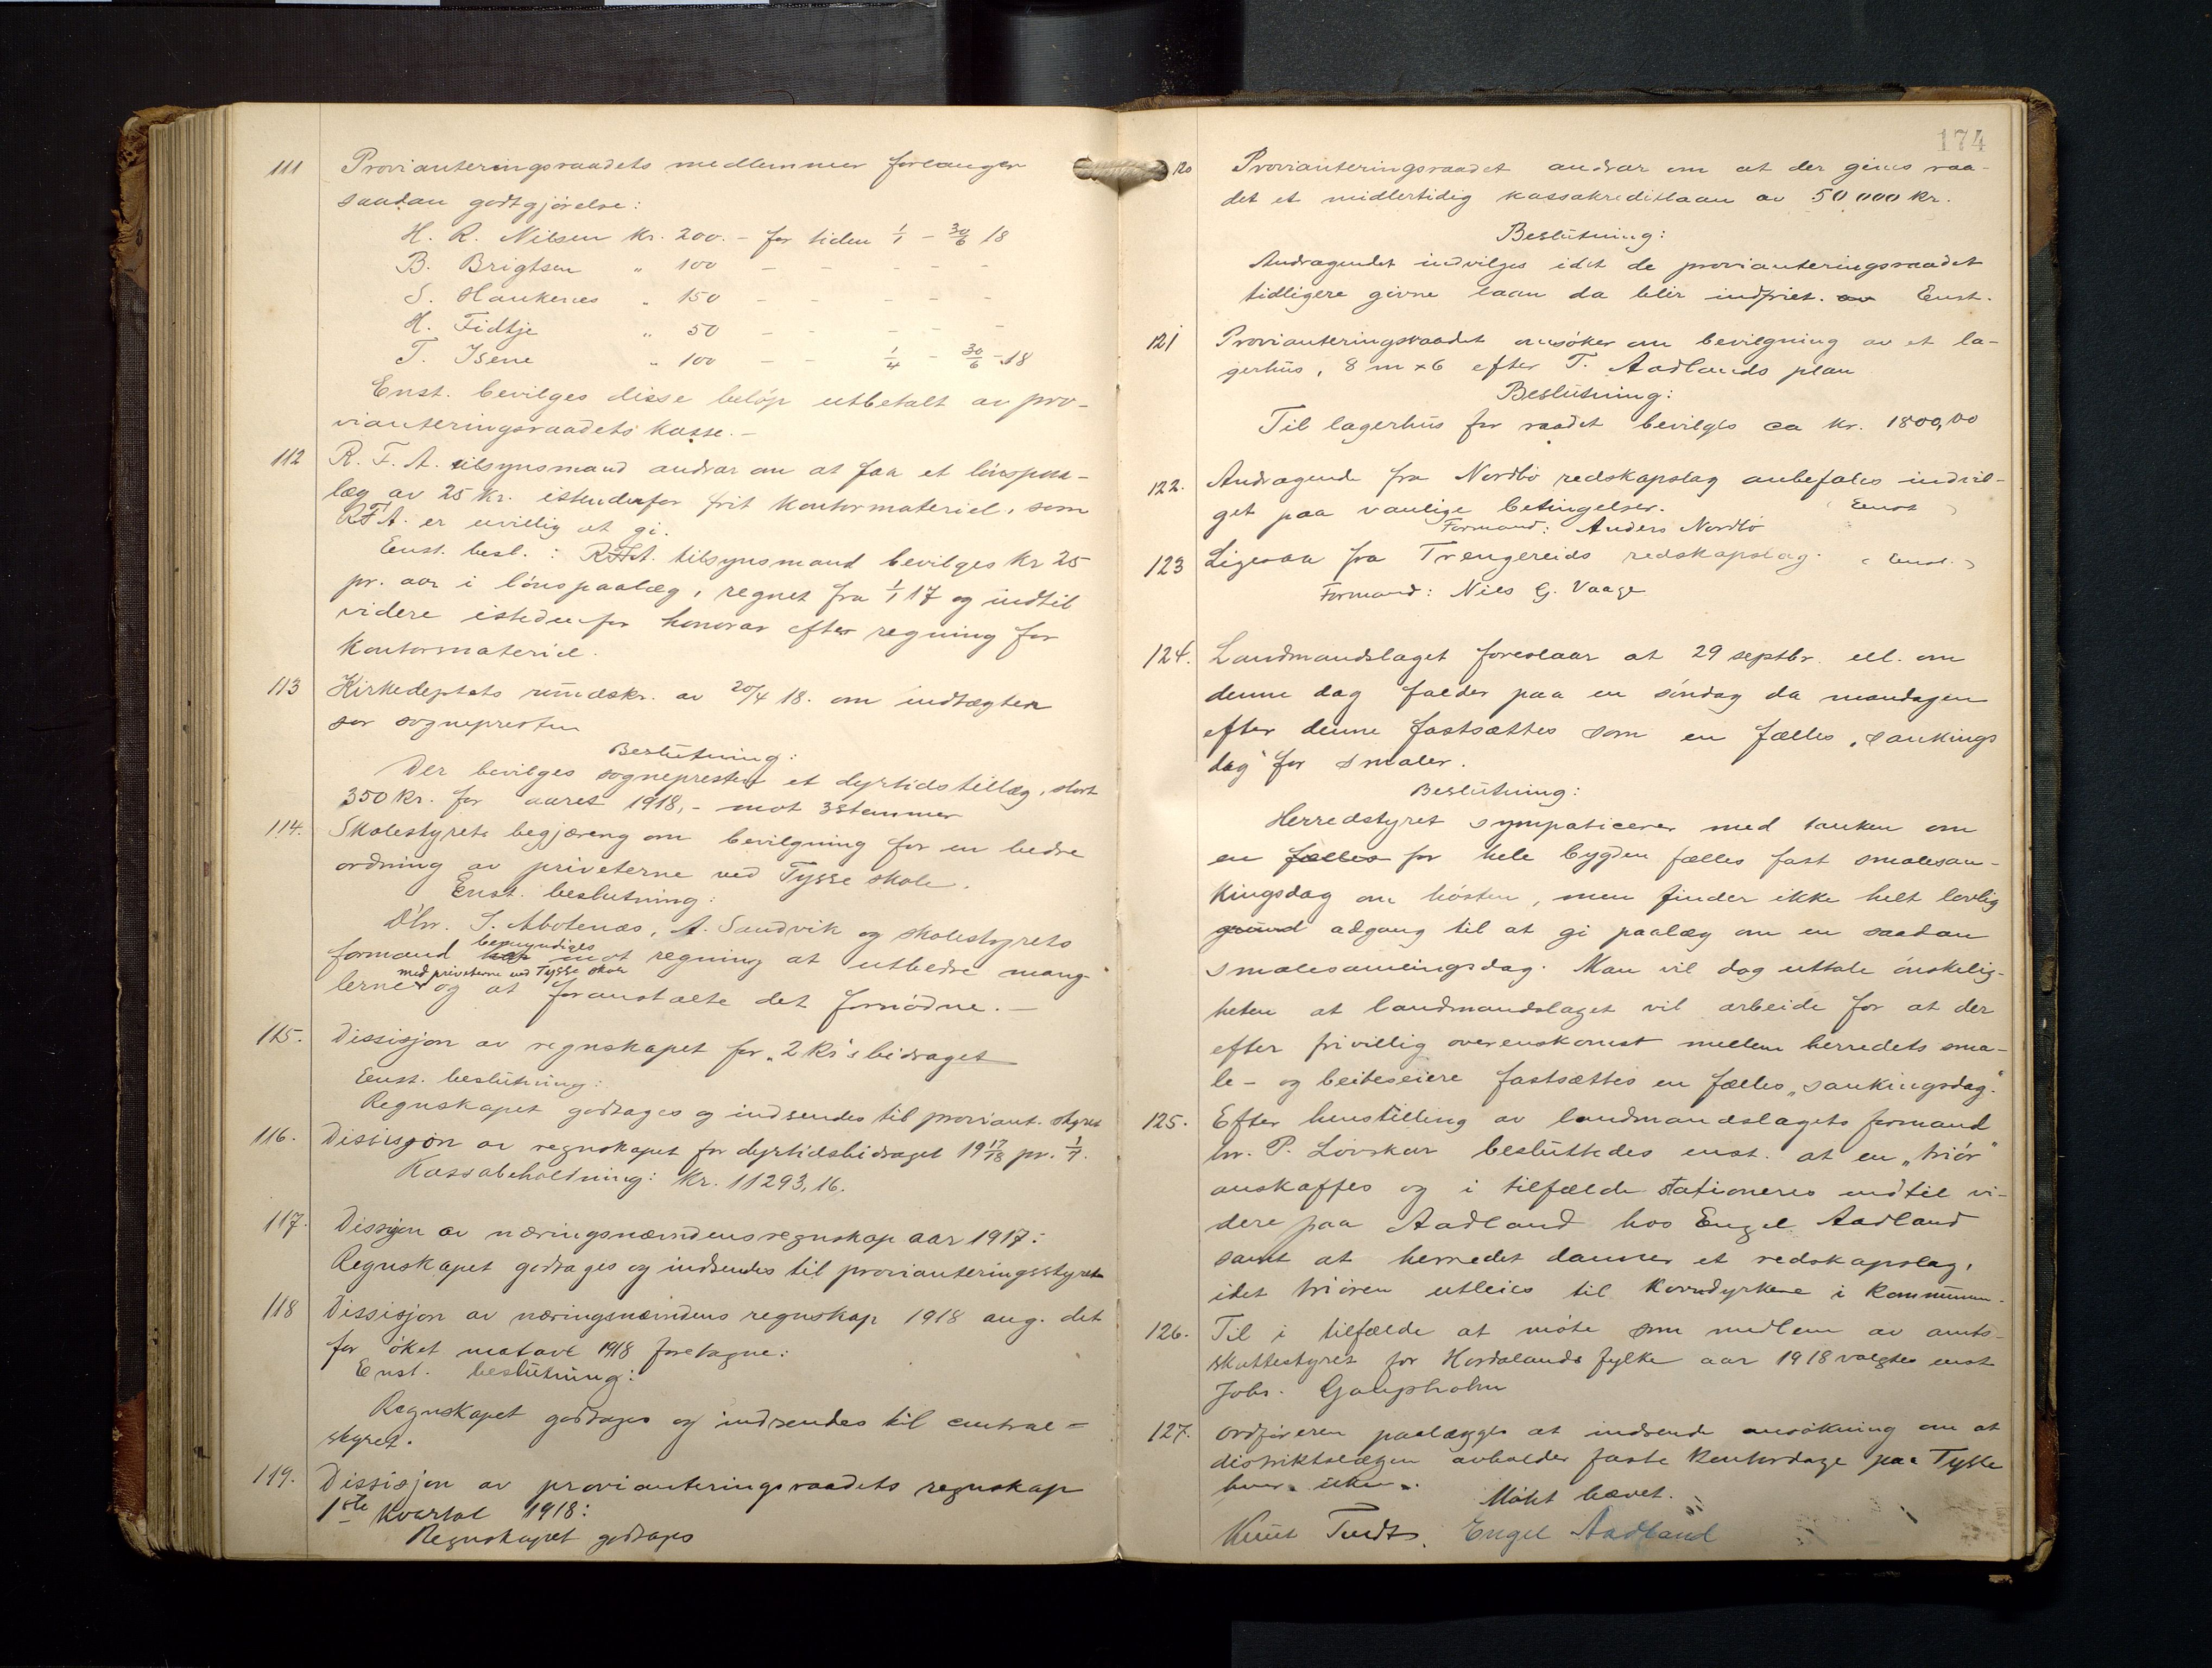 111 Provianteringsraadets medlemmer forlanger
saadan godtgjørelse:
H. R. Nilsen kr. 200.- for tiden 1/1 - 30/6 18
B. Brigtsen " 100 - - - - -
S. Haukenes " 150 - - - - -
H. Fidtje " 50 - - - - -
T. Isene " 100 - - 1/4 - 30/6 - 18
Enst. bevilges disse beløp utbetalt av pro-
vianteringsraadets kasse.-
112 R. F. A. tilsynsmand andrar om at faa et lønspaa-
læg av 25 kr. istedenfor frit kontormateriel, som
R.F.A. er uvillig at gi.
Enst. besl.: R.F.A. tilsynsmand bevilges kr 25
pr. aar i lønspaalæg, regnet fra 1/1 17 og indtil
videre istedenfor honorar efter regning for
kontormateriel.
113 Kirkedeptets rundskr. av 20/4 18. om indtægter
for sogneprester
Beslutning:
Der bevilges sognepresten et dyrtidstillæg, stort
350 kr. for aaret 1918,- mot 3 stemmer
114. Skolestyrets begjæring om bevilgning for en bedre
ordning av priveterne ved Tysse skole.
Enst. beslutning:
D'hr. S. Abotenæs, A. Sandvik og skolestyrets
formand bemyndiges mot regning at utbedre mang-
lerne med priveterne ved Tysse skole og at foranstalte det fornødne.-
115. Dissisjon av regnskapet for "2 kr's bidraget
Enst. beslutning:
Regnskapet godtages og indsendes til proviant. styret
116. Dissisjon av regnskapet for dyrtidsbidraget 19 17/18 pr. 1/7.
Kassabeholdning: Kr. 11293,16.
117. Dissisjon av næringsnævndens regnskap aar 1917:
Regnskapet godtages og indsendes til provianteringsstyret
118 Dissisjon av næringsnævndens regnskap 1918 ang. det
for øket matavl 1918 foretagne:
Enst. beslutning:
Regnskapet godtages og indsendes til central-
styret.
119. Dissisjon av provianteringsraadets regnskap
1ste kvartal 1918:
Regnskapet godtages
174
120 Provianteringsraadet andrar om at der gives raa-
det et midlertidig kassakreditlaan av 50 000 kr.
Beslutning:
Andragendet indvilges idet de provianteringsraadet
tidligere givne laan da blir indfriet. av Enst.
121 Provianteringsraadet ansøker om bevilgning av et la-
gerhus, 8 m x 6 efter T. Aadlands plan
Beslutning:
Til lagerhus for raadet bevilges ca kr. 1800,00
122. Andragende fra Nordbø redskapslag anbefales indvil-
get paa vanlige betingelser. (Enst)
Formand: Anders Nordbø
123 Ligesaa fra Trengereids redskapslag. (Enst.)
Formand: Nils G. Vaage
124. Landmandslaget foreslaar at 29 septbr. ell. om
denne dag falder paa en søndag da mandagen
efter denne fastsættes som en fælles "sankings
dag" for smaler.
Beslutning:
Herredstyret sympaticerer med tanken om
en fælles for hele bygden fælles fast smalesan-
kingsdag om høsten, men finder ikke helt lovlig
grund adgang til at gi paalæg om en saadan
smalesamlingsdag. Man vil dog uttale ønskelig-
heten at landmandslaget vil arbeide for at der
efter frivillig overenskomst mellem herredets sma-
le- og beiteseiere fastsættes en fælles "sankingsdag".
125. Efter henstilling av landmandslagets formand
hr. P. Løvskar besluttedes enst. at en "triør"
anskaffes og i tilfælde stationeres indtil vi-
dere paa Aadland hos Engel Aadland
samt at herredet danner et redskapslag,
idet triøren utleies til korndyrkere i kommunen.
126. Til i tilfælde at møte som medlem av amts-
skattestyret for Hordalands fylke aar 1918 valgtes enst
Johs. Gaupholm
127. Ordføreren paalægges at indsende ansøkning om at
distriktslægen avholder faste kontordage paa Tysse
hver uke.
Møtet hævet.
Knut Tvedt, Engel Aadland